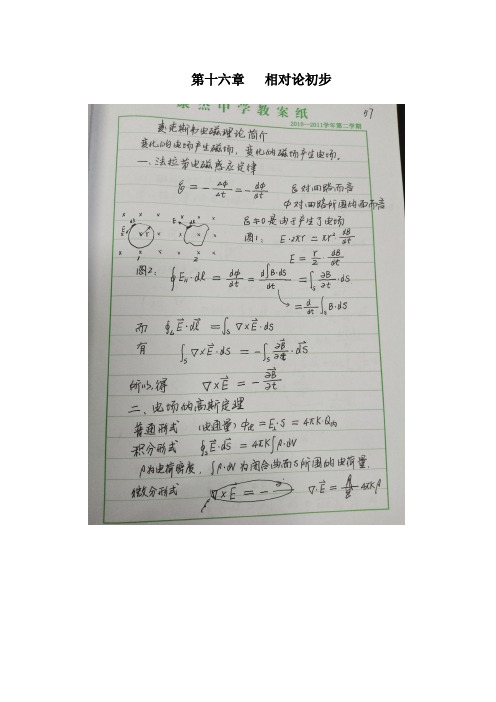 第十六章 相对论初步
康杰中学教案纸
2010—2011学年第二学期
37
麦克斯韦电磁理论简介
变化的电场产生磁场，变化的磁场产生电场。
一、法拉第电磁感应定律
ℰ = -Δφ/Δt = -dφ/dt ℰ对回路而言
φ对回路所围的面而言
ℰ≠0是由于产生了电场
图1： E·2πr = πr²·dB/dt
1 2
E = r/2·dB/dt
图2： ∮E_{//}·dl = dφ/dt = d∫B·ds/dt = ∫_s ∂B/∂t·ds
= d/dt∫_s B·ds
而 ∮_L E⃗·dl⃗ = ∫_s ∇×E⃗·ds
有 ∫_s ∇×E⃗·ds = -∫_s ∂B⃗/∂t·ds⃗
所以，得 ∇×E⃗ = -∂B⃗/∂t
二、电场的高斯定理
普通形式 （电通量）φ_E = E_⊥·S = 4πK·Q内
积分形式 ∮_s E⃗·ds⃗ = 4πK∫ρ·dV
ρ为电荷密度，∫ρ·dV为闭合曲面S所围的电荷量.
微分形式 ∇×E⃗ = - ∇·E⃗ = 4πKρ